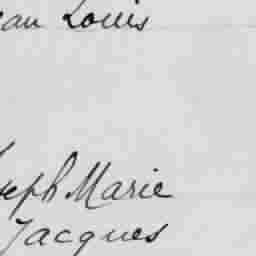 ean Louis
oseph Marie
Jacques